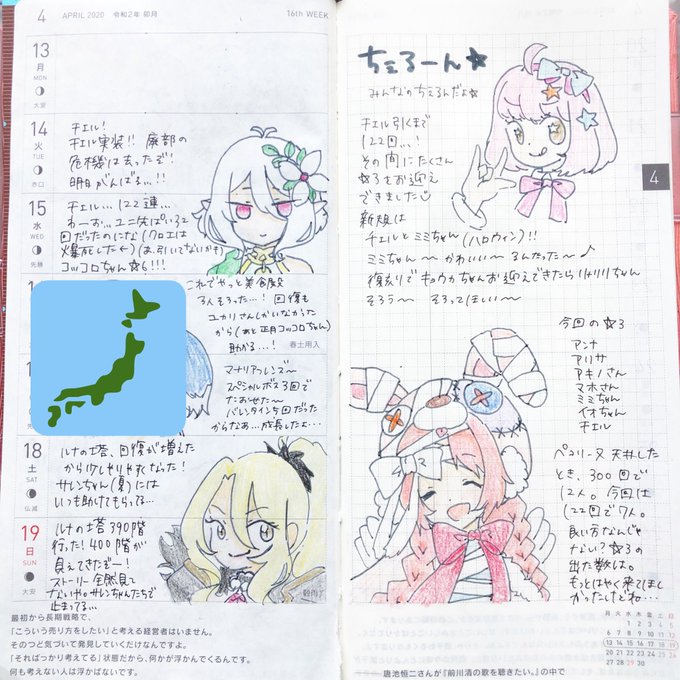 4 APRIL 2020 令和2年 卯月 16th WEEK
13
月
MON
大安
14
火
TUE
赤口
チェル!
チェル実装!! 廃部の
危機は去ったぞ!
明日がんばろ…!!
15
水
WED
先勝
チェル…122連…
わーお… ユニ
回だったのにな(クロエは
爆死した←)(お、引いてないかも)
コッコロちゃん☆6!!!
1
これでやっと美食殿
3人そろった…! 回復も
ユカリさんしかいなかった
から(あと正月コッコロちゃん)
助かる…! 春土用入
マナリアフレンズ〜
スペシャルボス3回で
たおせた〜
バレンタイン5回だった
からなあ…成長したよ…
先
18
土
SAT
仏滅
ルナの塔、回復が増えた
から少しやりやすくなった!
サレンちゃん(夏)には
いつも助けてもらってる…
19
日
SUN
大安
ルナの塔390階
行った! 400階が
見えてきたぞー!
ストーリー全然見て
ないや。サレンちゃんたちで
止まってる…
穀雨
最初から長期戦略で、
「こういう売り方をしたい」と考える経営者はいません。
そのつど気づいて発見していくだけなんですよ。
「そればっかり考えてる」状態だから、何かが浮かんでくるんです。
何も考えない人は浮かばないです。
ちぇるーん☆
みんなのちぇるんだよ☆
チェル引くまで
122回…!
その間にたくさん
☆3をお迎え
できました
新規は
チェルとミミちゃん(ハロウィン)!!
ミミちゃん〜 かわいい〜 るんたった〜♪
復刻りでキョウカちゃんお迎えできたらリトリリちゃん
そろう〜 そろってほしい〜
4
今回の☆3
アンナ
アリサ
アキノさん
マホさん
ミミちゃん
イオちゃん
チェル
ペコリーヌ天井した
とき、300回で
12人。今回は
122回で7人。
良い方なんじゃ
ない? ☆3の
出た数は。
もっとはやく来てほし
かったけどね…
月 火 水 木 金 土 日
1 2 3 4 5
6 7 8 9 10 11 12
13 14 15 16 17 18 19
20 21 22 23 24 25 26
27 28 29 30
唐池恒二さんが『前川清の歌を聴きたい。』の中で